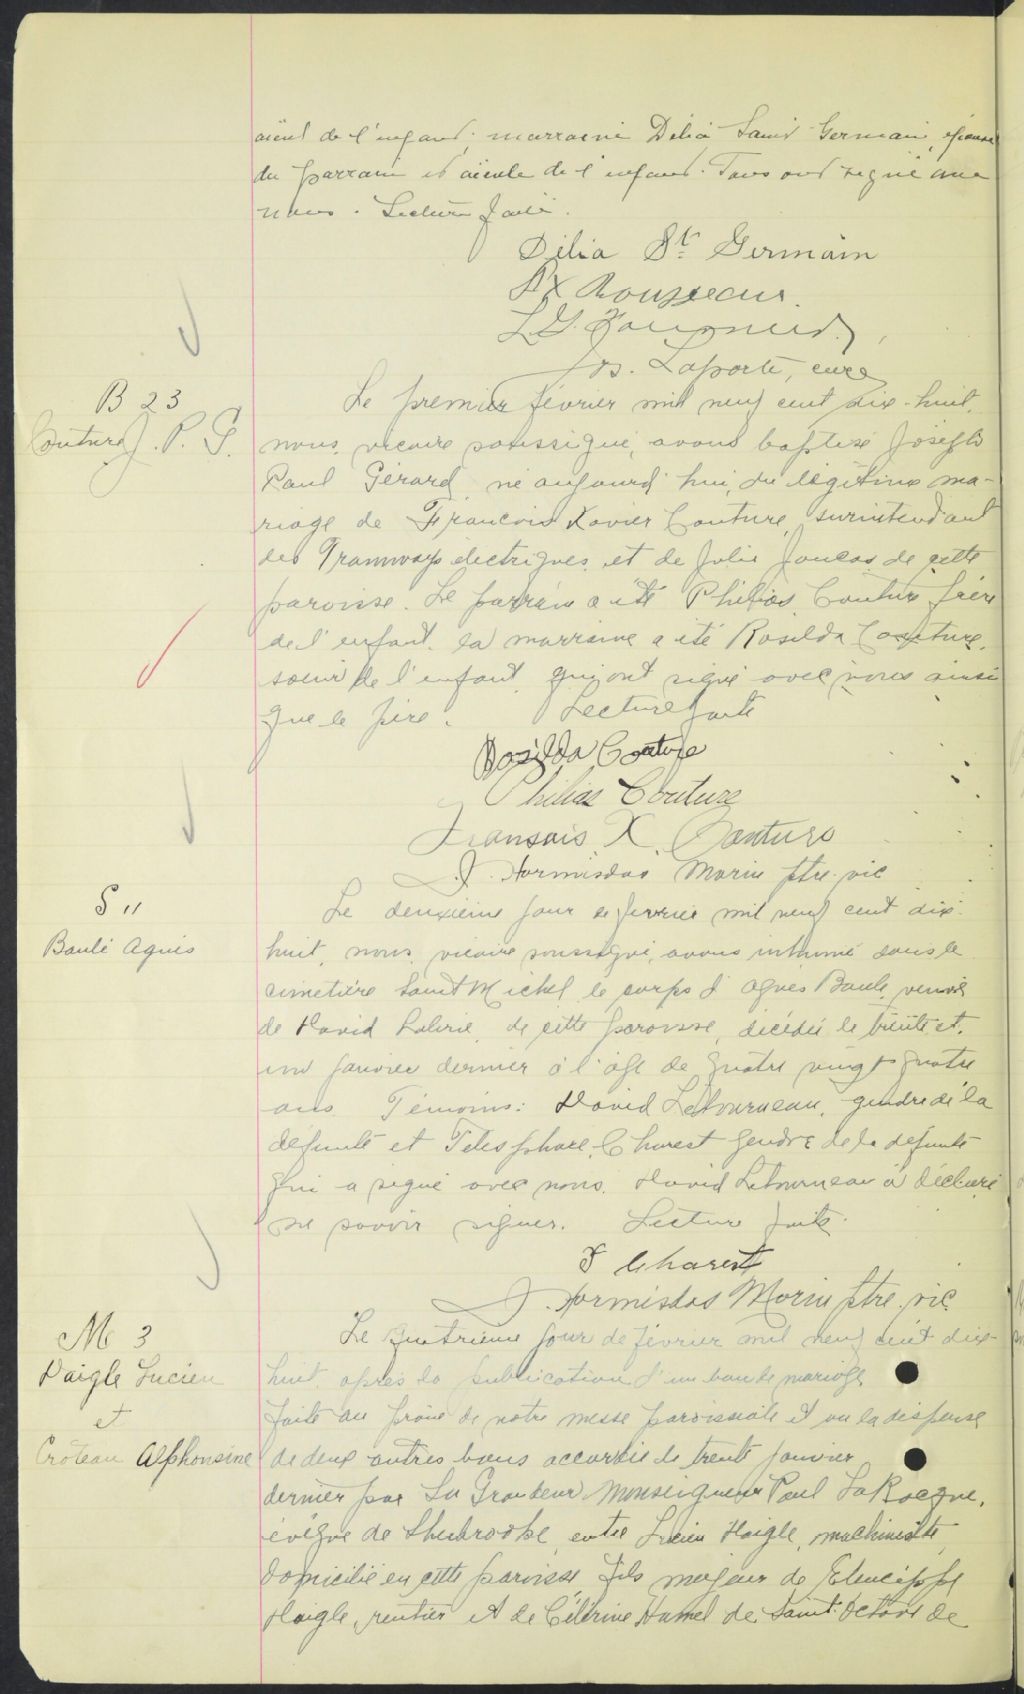 aïeul de l'enfant; marraine Délia Saint Germain, épouse
du parrain et aïeule de l'enfant. Tous ont signé avec
nous. Lecture faite.
Délia St Germain
Jos. Laporte, curé
B 23
Couture J. P. G.
Le premier février mil neuf cent dix-huit,
nous, vicaire soussigné, avons baptisé Joseph
Paul Gérard, né aujourd'hui, du légitime ma-
riage de François Xavier Couture, surintendant
des Tramways électriques et de Julie Joncas de cette
paroisse. Le parrain a été Philias Couture frère
de l'enfant, la marraine a été Rosilda Couture,
soeur de l'enfant, qui ont signé avec nous ainsi
que le père. Lecture faite
Rosilda Couture
Philias Couture
Fransois X. Couture
J. Hormisdas Morin ptre. vic
S "
Baulé Agnès
Le deuxième jour de février mil neuf cent dix-
huit, nous, vicaire soussigné, avons inhumé dans le
cimetière Saint Michel le corps d'Agnès Baulé, veuve
de David, de cette paroisse, décédée le trente et
un janvier dernier à l'âge de quatre vingt quatre
ans. Témoins: David Létourneau, gendre de la
défunte et Télesphore Charest gendre de la défunte
qui a signé avec nous. David Létourneau a déclaré
ne savoir signer. Lecture faite.
T Charest
J. Hormisdas Morin ptre. vic.
M 3
Daigle Lucien
et
Croteau Alphonsine
Le quatrième jour de février mil neuf cent dix-
huit, après la publication d'un ban de mariage
faite au prône de notre messe paroissiale et vu la dispense
de deux autres bans accordée le trente janvier
dernier par Sa Grandeur Monseigneur Paul LaRocque,
évêque de Sherbrooke, entre Lucien Daigle, machiniste,
domicilié en cette paroisse, fils majeur de
Daigle, rentier et de Célérine Hamel de Saint-Octave de